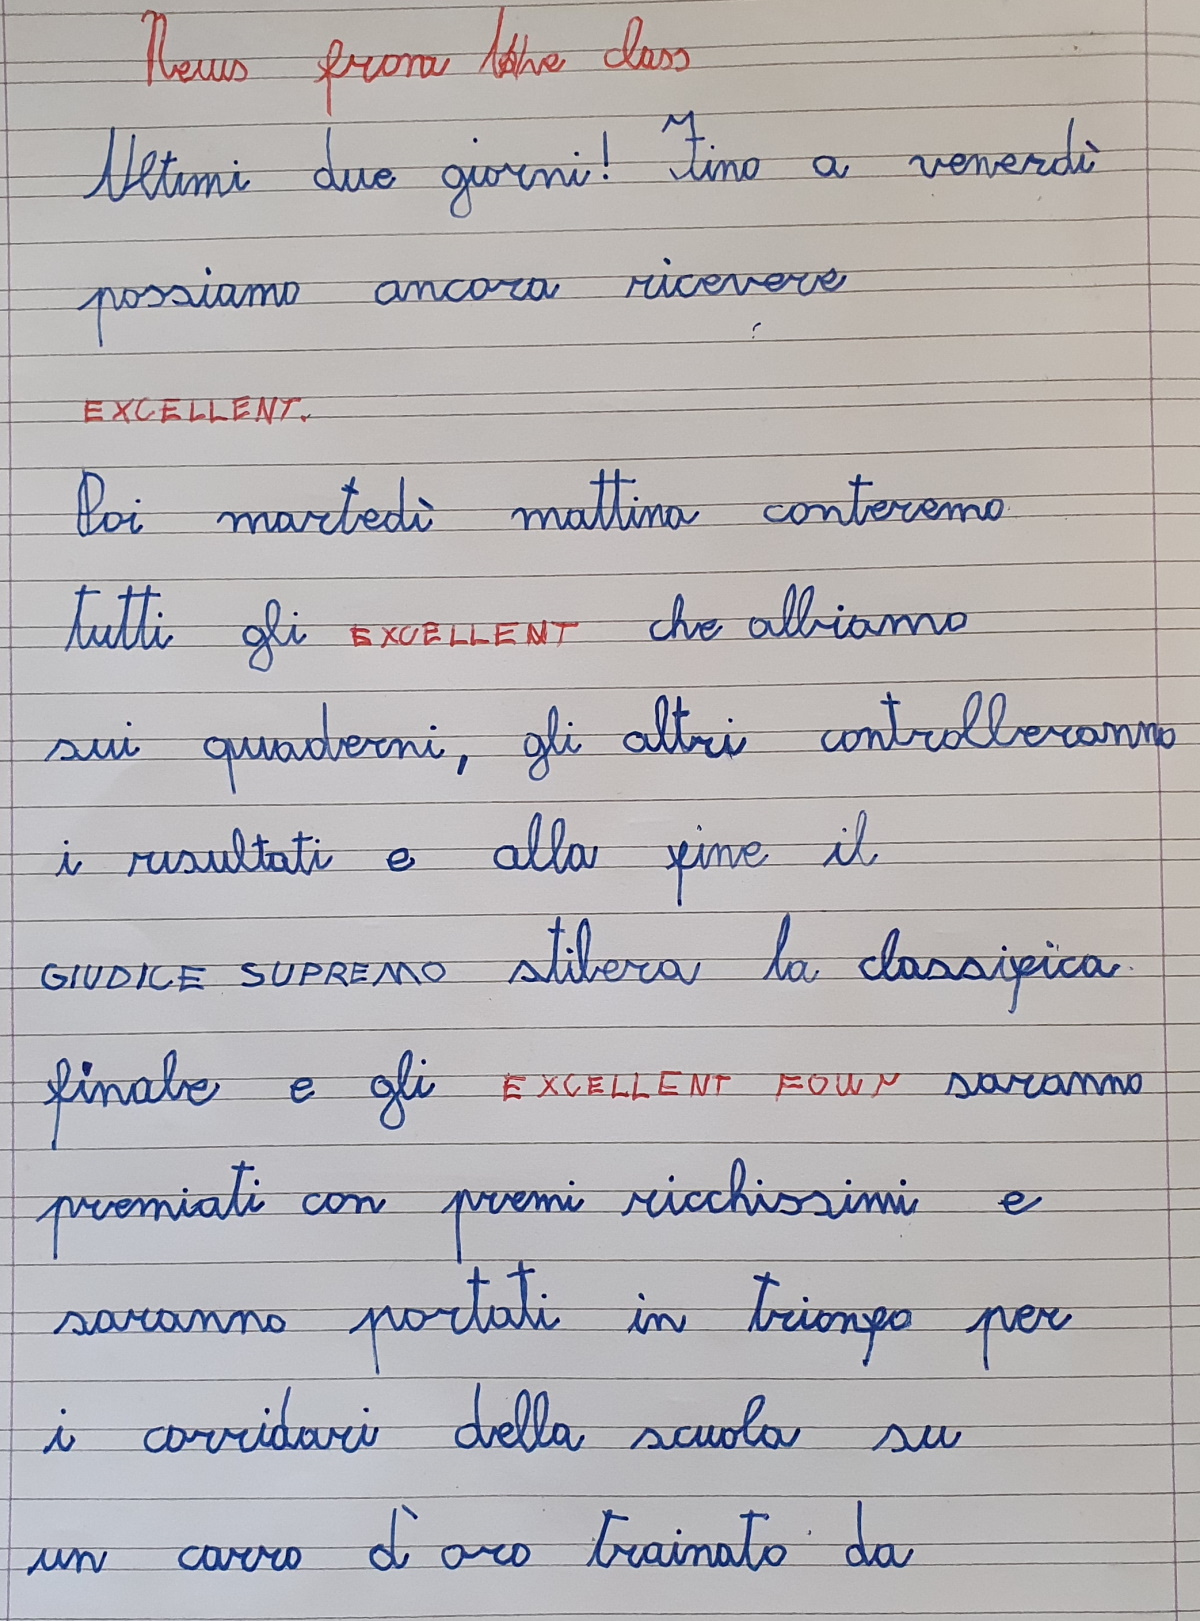 News from the class
Ultimi due giorni! Fino a venerdì
possiamo ancora ricevere
EXCELLENT.
Poi martedì mattina conteremo
tutti gli EXCELLENT che abbiamo
sui quaderni, gli altri controlleranno
i risultati e alla fine il
GIUDICE SUPREMO stilera la classifica
finale e gli EXCELLENT FOUR saranno
premiati con premi ricchissimi e
saranno portati in trionfo per
i corridori della scuola su
un carro d'oro trainato da